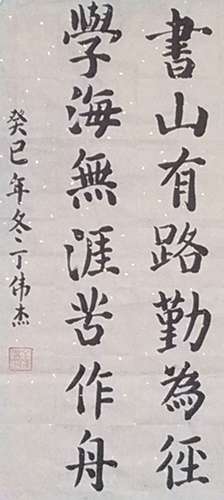 書山有路勤為徑
學海無涯苦作舟
癸巳年冬丁伟杰